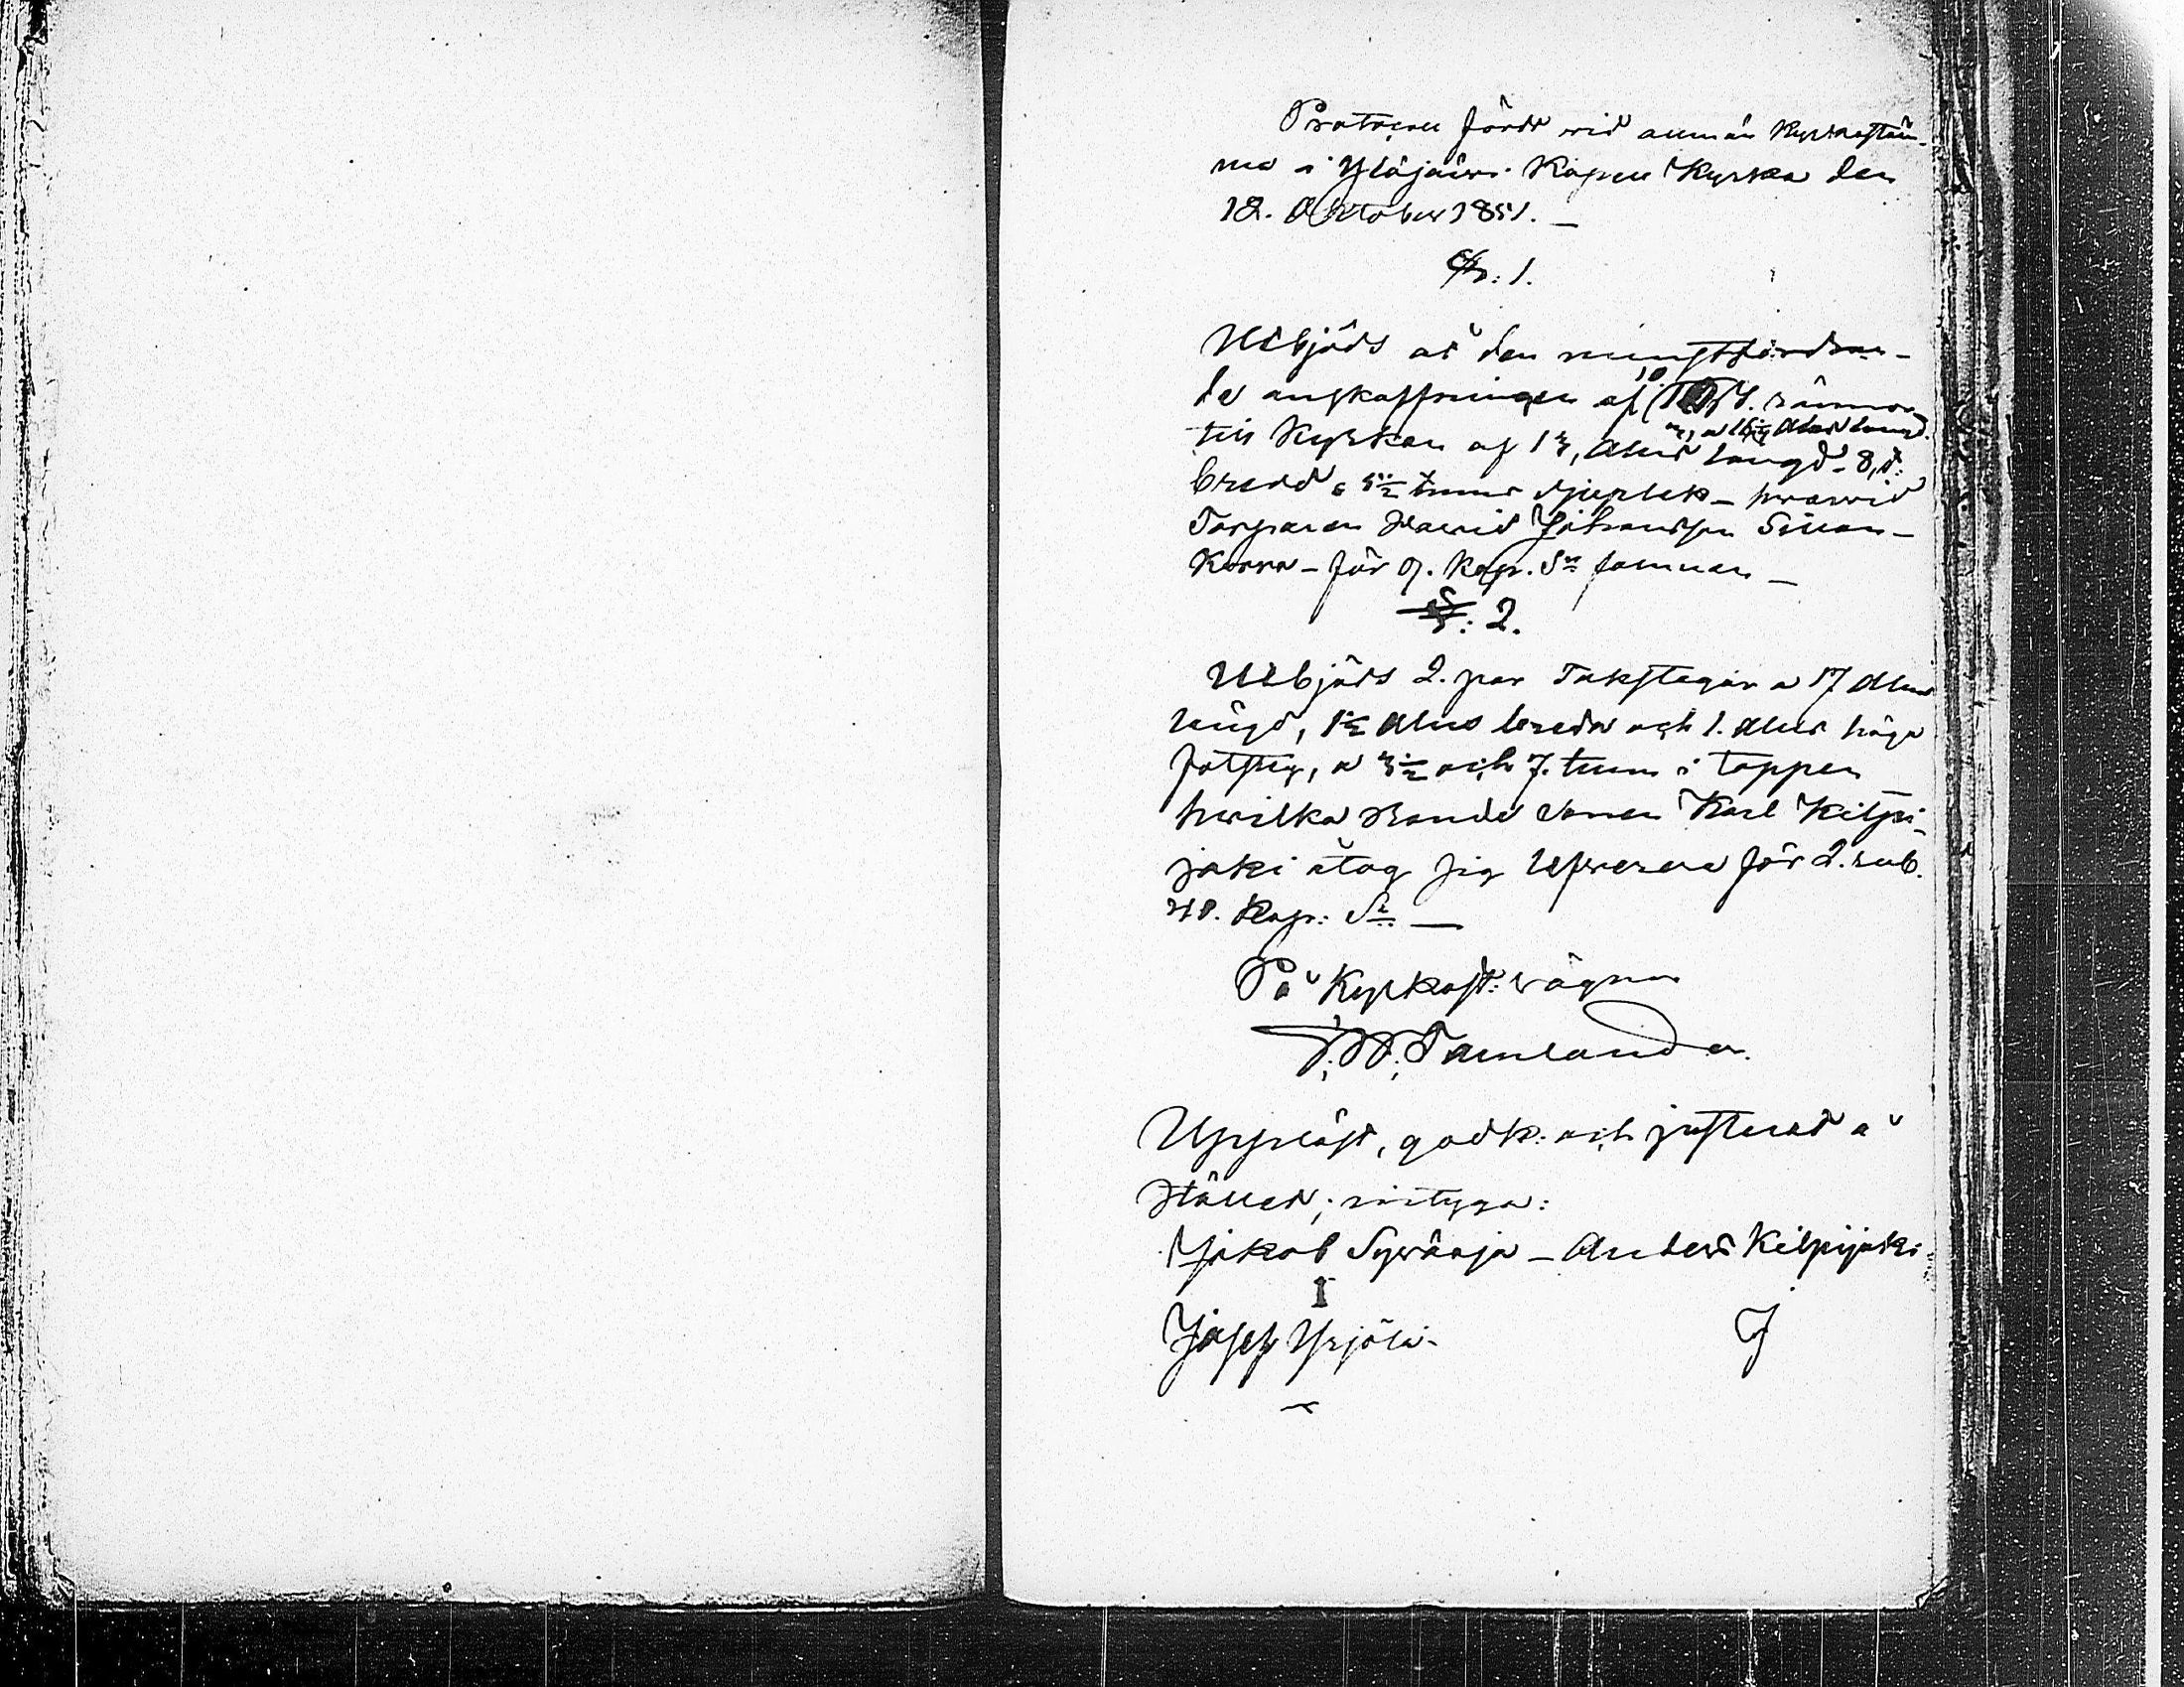 Protocoll fördt wid allmän Kyrkostäm-
ma i Ylöjärwi Kapell Kyrka den
12. Oktober 1851. –
§: 1.
Utbjöds åt den minstfordran-
de anskaffningen af 4. rännor
till Kyrkan af Alns längd 8, t:
bredd tums djuplek – hwarvid
Torparen David Johansson Sillan-
Korva – för 9. kop. Sr famnen –
§: 2.
Utbjöds 2. par Takstegar a 17 Alnars
längd, 1½ Alns breda och 1. Alns höga
fotsteg, a 3½ och 7. tum i toppen
hwilka Bonde sonen Karl Kilpi-
joki åtog sig Upwisa för 2. rub.
40. Kop: Sr –
På Kyrkost: wägnar
F: W: Tamlander.
Uppläst, godk. och justerad å
stället; intyga:
Jakob Sywäoja – Anders Kilpijoki
I
Josef Yrjölä